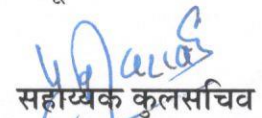 सहाय्यक कुलसचिव